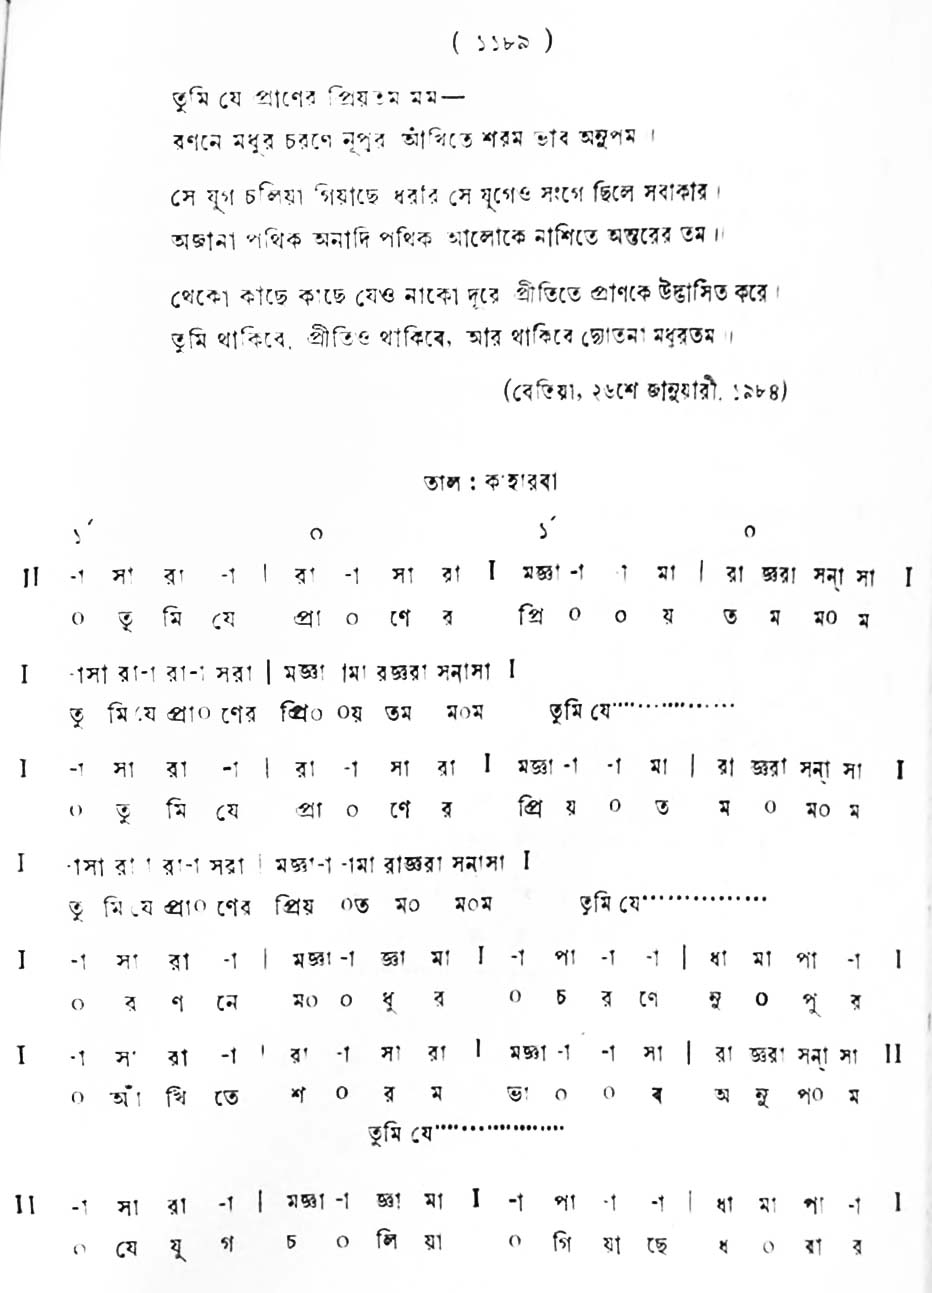 ( ১১৮৯ )
তুমি যে প্রাণের প্রিয়তম মম—
রণনে মধুর চরণে নূপুর আঁখিতে শরম ভাব অনুপম ।
সে যুগ চলিয়া গিয়াছে ধরার সে যুগেও সংগে ছিলে সবাকার ।
অজানা পথিক অনাদি পথিক আলোকে নাশিতে অন্তরের তম ॥
থেকো কাছে কাছে যেও নাকো দূরে প্রীতিতে প্রাণকে উদ্ভাসিত করে ।
তুমি থাকিবে, প্রীতিও থাকিবে, আর থাকিবে দ্যোতনা মধুরতম ॥
(বেতিয়া, ২৬শে জানুয়ারী, ১৯৮৪)
তাল : কাহারবা
১´ ০ ১´ ০
II -া সা রা -া | রা -া সা রা I মজ্ঞা -া -া মা | রা জ্ঞরা সন্‌া সা I
০ তু মি যে প্রা ০ ণে র প্রি ০ ০ য় ত ম ম০ ম
I -াসা রা-া রা-া সরা | মজ্ঞা -ামা রজ্ঞরা সন্‌াসা I
তু মি যে প্রা০ ণের প্রি০ ০য় তম ম০ম তুমি যে··················
I -া সা রা -া | রা -া সা রা I মজ্ঞা -া -া মা | রা জ্ঞরা সন্‌া সা I
০ তু মি যে প্রা ০ ণে র প্রি য় ০ ত ম ০ ম০ ম
I -াসা রা -া রা-া সরা | মজ্ঞা-া -ামা রাজ্ঞরা সন্‌াসা I
তু মি যে প্রা০ ণের প্রিয় ০ত ম০ ম০ম তুমি যে··················
I -া সা রা -া | মজ্ঞা -া জ্ঞা মা I -া পা -া -া | ধা মা পা -া I
০ র ণ নে ম০ ০ ধু র ০ চ র ণে নু ০ পু র
I -া সা রা -া | রা -া সা রা I মজ্ঞা -া -া সা | রা জ্ঞরা সন্‌া সা II
০ আঁ খি তে শ ০ র ম ভা ০ ০ ব অ নু প০ ম
তুমি যে··················
II -া সা রা -া | মজ্ঞা -া জ্ঞা মা I -া পা -া -া | ধা মা পা -া I
০ যে যু গ চ ০ লি য়া ০ গি য়া ছে ধ ০ রা র